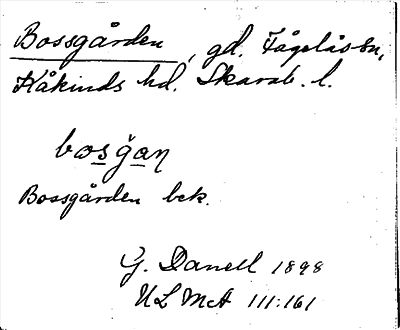 Bossgården, gd. Fågelås sn,
Kåkinds hd. Skarab. l.
bosgan
Bossgården bek.
G. Danell 1898
ULMA 111:161